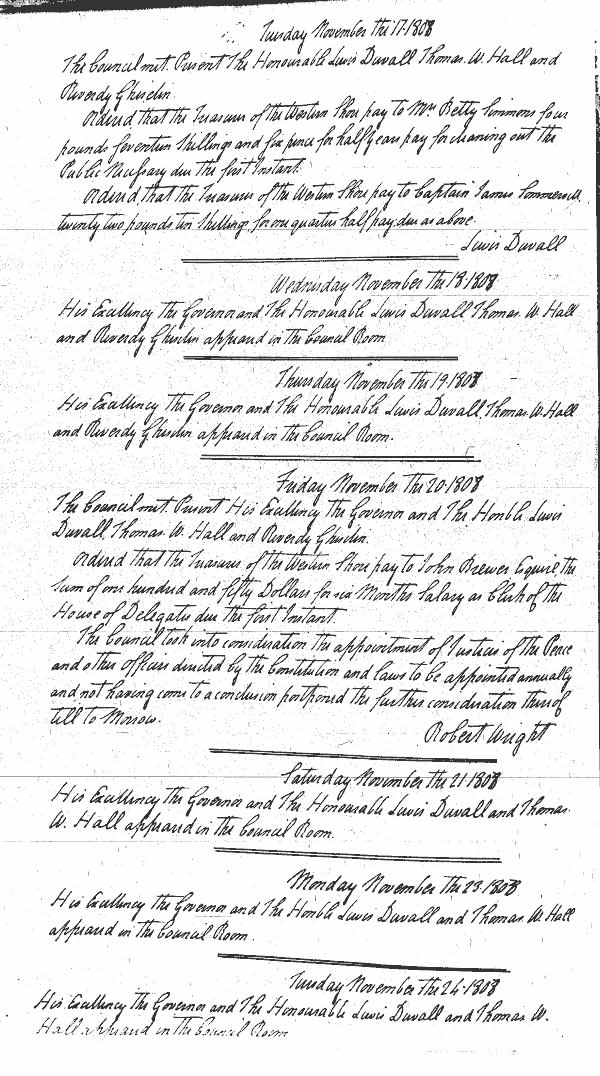 Tuesday November the 17. 1808
The Council met. Present The Honourable Lewis Duvall Thomas. W. Hall and
Reverdy Ghiselin.
Ordered that the Treasurer of the Western Shore pay to Mrs Betty Simmons four
pounds seventeen shillings and six pence for half years pay for cleaning out the
Public Necessary due the first Instant.
Ordered, that the Treasurer of the Western Shore pay to Captain James Sommervill.
twenty two pounds ten shillings for one quarter half pay: due as above
Lewis Duvall
Wednesday November the 18. 1808
His Excellency the Governor and The Honourable Lewis Duvall Thomas. W. Hall
and Reverdy Ghiselin appeared in the Council Room
Thursday November the 19. 1808
His Excellency the Governor and The Honourable Lewis Duvall, Thomas. W. Hall
and Reverdy Ghiselin appeared in the Council Room.
Friday November the 20. 1808
The Council met. Present His Excellency the Governor and The Honble. Lewis
Duvall, Thomas. W. Hall and Reverdy Ghiselin.
Ordered that the Treasurer of the Western Shore pay to John Brewer Esquire the
sum of one hundred and fifty Dollars for six Months Salary as Clerk of the
House of Delegates due the first Instant.
The Council took into consideration the appointment of Justices of the Peace
and other officers directed by the Constitution and laws to be appointed annually
and not having come to a conclusion postponed the further consideration thereof
till to Morrow.
Robert Wright
Saturday November the 21. 1808
His Excellency the Governor and The Honourable Lewis Duvall and Thomas.
W. Hall appeared in the Council Room.
Monday November the 23. 1808
His Excellency the Governor and The Honble Lewis Duvall and Thomas. W. Hall
appeared in the Council Room.
Tuesday November the 24. 1808
His Excellency the Governor and The Honourable Lewis Duvall and Thomas W.
Hall appeared in the Council Room